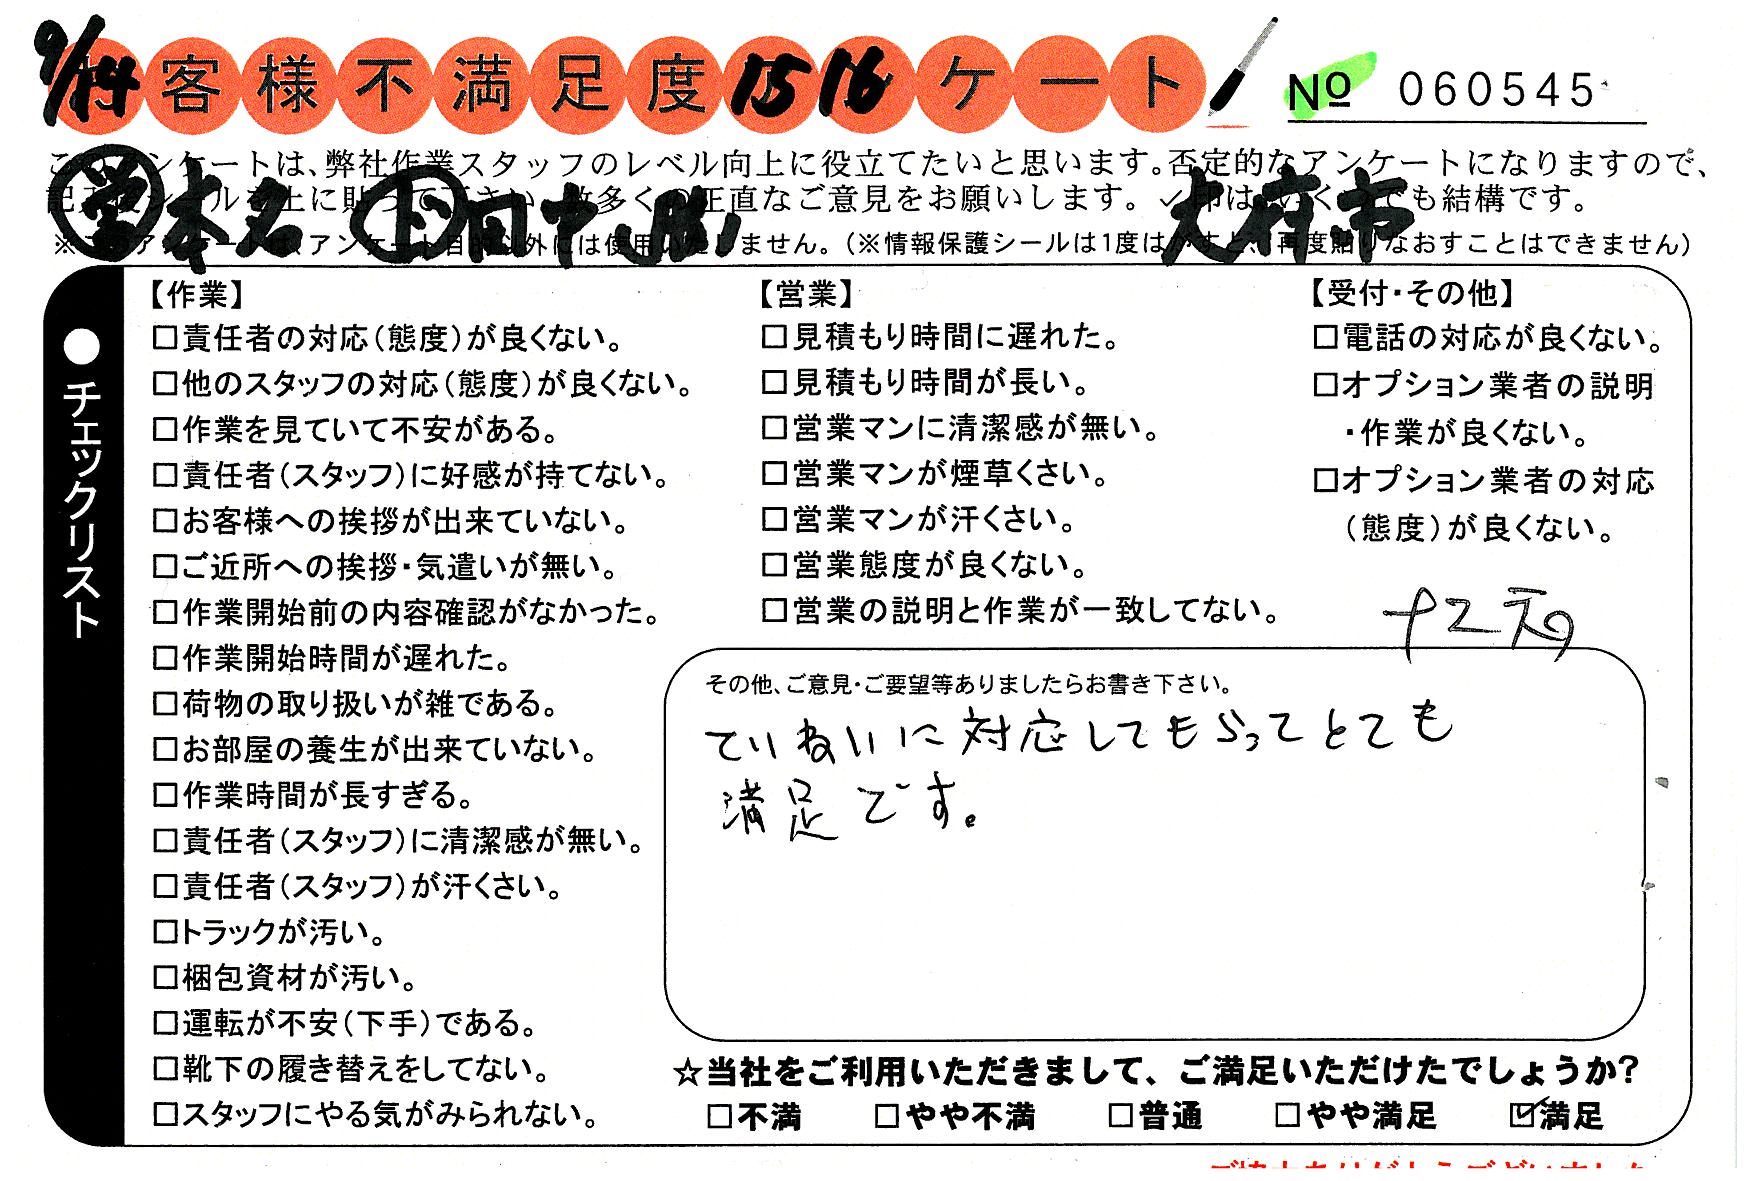 9/14 客様不満足度 15 16 ケート
№ 060545
このアンケートは、弊社作業スタッフのレベル向上に役立てたいと思います。否定的なアンケートになりますので、
数多くの正直なご意見をお願いします。✓印はいくつでも結構です。
営 本名 田中 大府市
※このアンケートは、アンケート目的以外には使用いたしません。(※情報保護シールは1度はがすと、再度貼りなおすことはできません)
●チェックリスト
【作業】
□責任者の対応(態度)が良くない。
□他のスタッフの対応(態度)が良くない。
□作業を見ていて不安がある。
□責任者(スタッフ)に好感が持てない。
□お客様への挨拶が出来ていない。
□ご近所への挨拶・気遣いが無い。
□作業開始前の内容確認がなかった。
□作業開始時間が遅れた。
□荷物の取り扱いが雑である。
□お部屋の養生が出来ていない。
□作業時間が長すぎる。
□責任者(スタッフ)に清潔感が無い。
□責任者(スタッフ)が汗くさい。
□トラックが汚い。
□梱包資材が汚い。
□運転が不安(下手)である。
□靴下の履き替えをしてない。
□スタッフにやる気がみられない。
【営業】
□見積もり時間に遅れた。
□見積もり時間が長い。
□営業マンに清潔感が無い。
□営業マンが煙草くさい。
□営業マンが汗くさい。
□営業態度が良くない。
□営業の説明と作業が一致してない。
【受付・その他】
□電話の対応が良くない。
□オプション業者の説明
・作業が良くない。
□オプション業者の対応
(態度)が良くない。
その他、ご意見・ご要望等ありましたらお書き下さい。
ていねいに対応してもらってとても
満足です。
☆当社をご利用いただきまして、ご満足いただけたでしょうか?
□不満 □やや不満 □普通 □やや満足 ☑満足